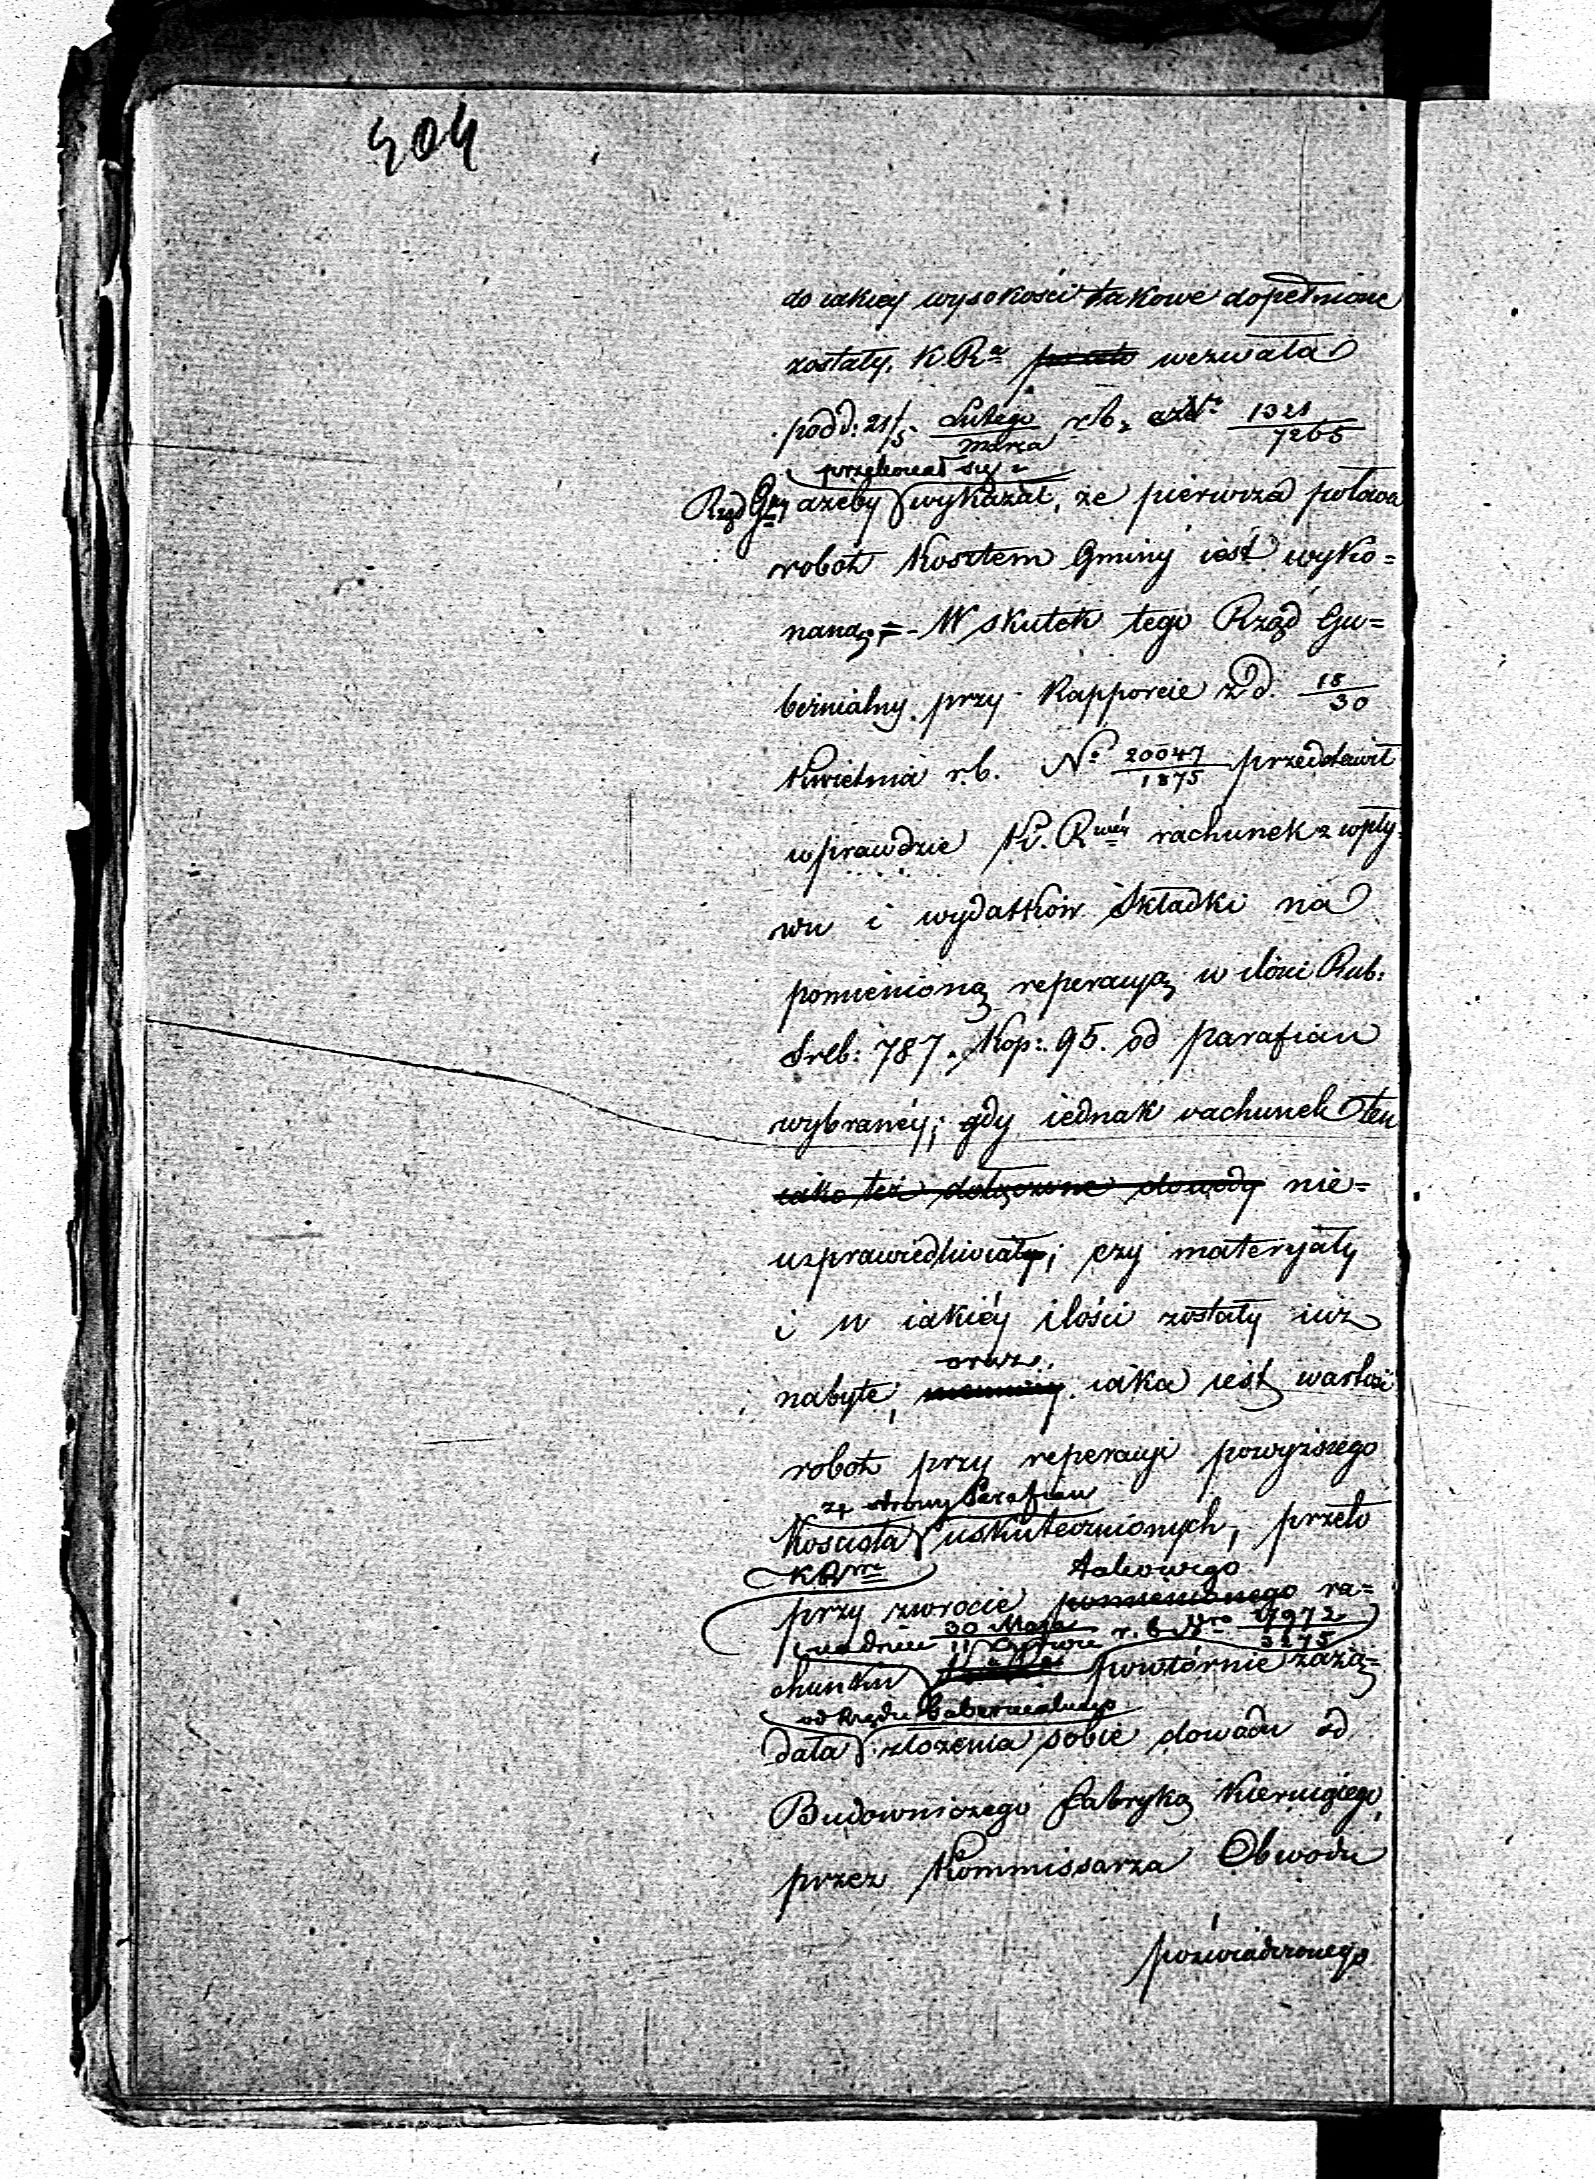 404
do iakiey wysokości takowe dopełnione
zostały. K. Ra przeto wezwała
pod d: 21/5 Lutego/Marca r.b. 1321/7265
przekonał się i
Rząd Gny ażeby wykazał, że pierwsza połowa
robót kosztem Gminy iest wyko=
naną; = W skutek tego Rząd Gu=
bernialny przy Rapporcie z d. 18/30
Kwietnia r.b. No 20047/1875 przedstawił
wprawdzie K. Rwéy rachunek z wpły-
wu i wydatków składki na
pomienioną reperacyą w ilości Rub:
Sreb: 787. Kop: 95. od parafian
wybranéy; gdy iednak rachunek ten
iako też dołączone dowody nie=
usprawiedliwiały; czy materyały
i w iakiéy ilości zostały iuż
oraz
nabyte, iaka iest wartość
robót przy reperacyi powyższego
ze strony Parafian
Kościoła uskutecznionych, przeto
K R
takowego
przy zwrocie pomienionego ra=
na dniu 30 Maja/11 Czerwca r. b. Nro 27972/3275
chunku powtórnie zażą=
od Rządu Gubernialnego
dała złożenia sobie dowodu od
Budowniczego fabryką kieruiącego,
przez Kommissarza Obwodu
poświadczonego